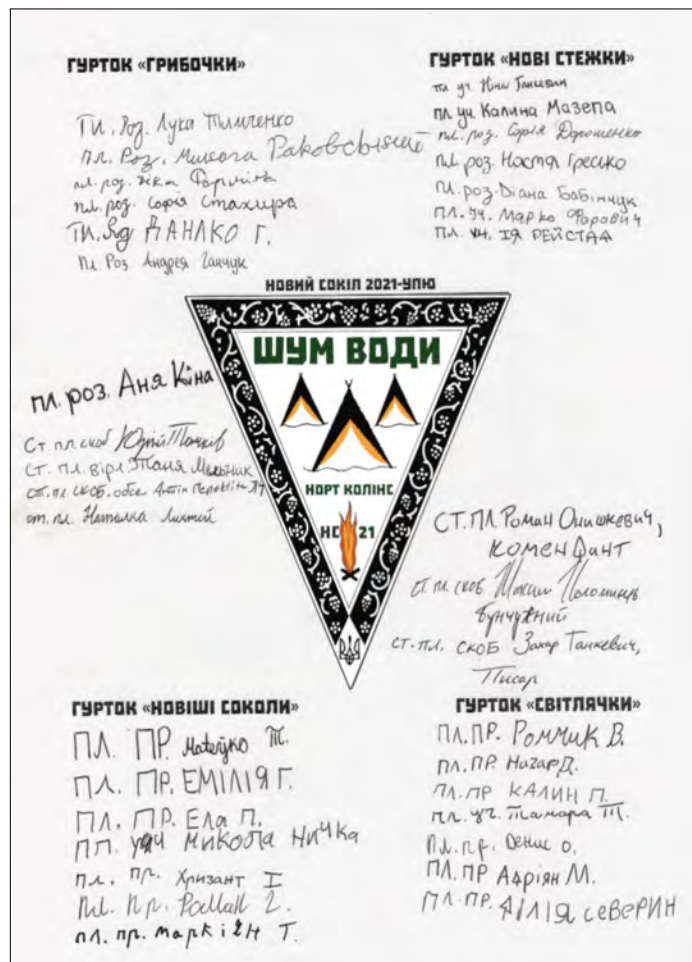 ГУРТОК «ГРИБОЧКИ»
Пл. Роз. Лука Тимченко
пл. Роз. Микола Раковський
пл. роз. Віка
пл. роз. Софія Стахира
Пл. ДАНЛКО Г.
Пл. Роз. Андрея Ганчук
ГУРТОК «НОВІ СТЕЖКИ»
пл уч. Ніна
пл. уч. Калина Мазепа
пл. роз. Софія Дорошенко
пл. роз. Настя Гресько
пл. роз. Діана Бабінчук
пл. уч. Марко Форович
пл. уч. ІЯ
НОВИЙ СОКІЛ 2021-УПЮ
ШУМ ВОДИ
НОРТ КОЛІНС
НС 21
пл. роз. Аня Кіна
Ст пл. скоб Юрій
Ст. пл. вірл. Таня Мельник
ст. пл. скоб.
ст. пл. Наталка
СТ. ПЛ. Роман Онишкевич,
комендант
ст. пл. скоб Максим Поломин
бунчужний
ст. пл. скоб Захар Ганкевич,
Писар
ГУРТОК «НОВІШІ СОКОЛИ»
ПЛ. ПР. Матейко Т.
ПЛ. ПР. ЕМІЛІЯ Г.
ПЛ. ПР. Ела П.
ПЛ. уч Микола Ничка
пл. пр. Хризант І
Пл. Пр. Роман
пл. пр. Маркіян Т.
ГУРТОК «СВІТЛЯЧКИ»
ПЛ. ПР. Ромчик В.
ПЛ. ПР. Назар Д.
ПЛ. ПР КАЛИН П.
пл. уч. Тамара Т.
Пл. пр. Денис О.
ПЛ. ПР Адріян М.
ПЛ. ПР. ЛІЛІЯ СЕВЕРИН